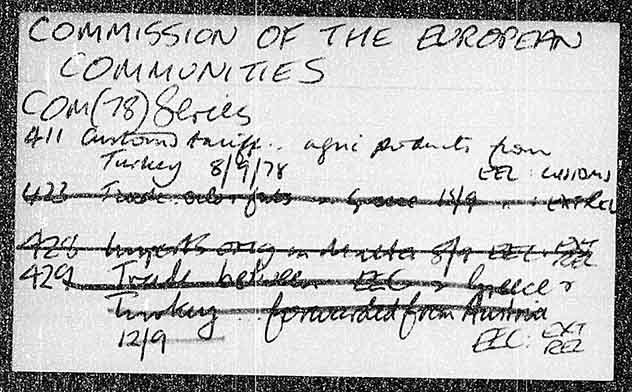 COMMISSION OF THE EUROPEAN
COMMUNITIES
COM(78) Series
411 Customs tariff.. agric products from
Turkey 8/9/78 EEC: CUSTOMS
423 Trade Greece 15/9 EXT REL
428 in Malta 8/9 EEC: EXT
REL
429 Trade between EEC & Greece &
Turkey .. forwarded from Austria
12/9 EEC: EXT
REL